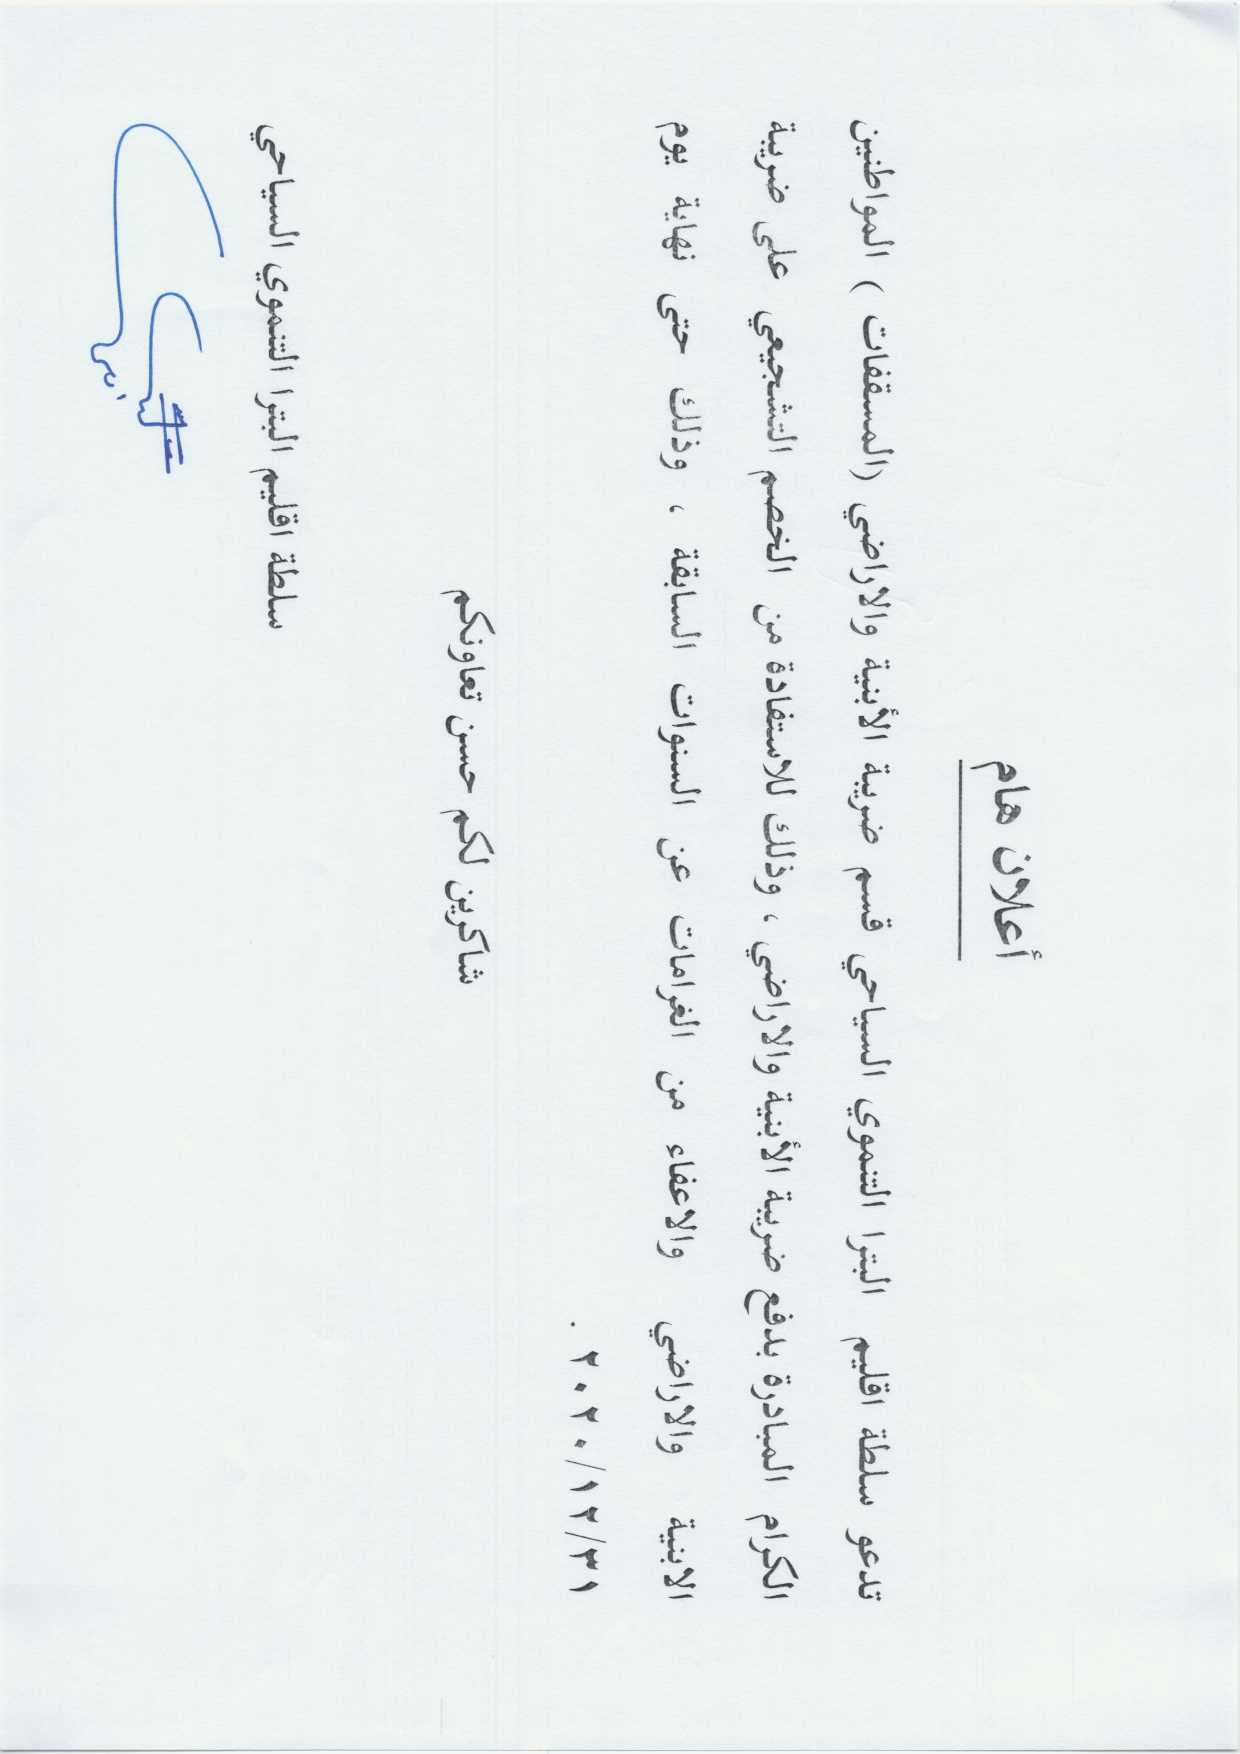 أعلان هام
تدعو سلطة اقليم البترا التنموي السياحي قسم ضريبة الأبنية والاراضي (المسقفات ) المواطنين
الكرام المبادرة بدفع ضريبة الأبنية والاراضي ، وذلك للاستفادة من الخصم التشجيعي على ضريبة
الابنية والاراضي والاعفاء من الغرامات عن السنوات السابقة ، وذلك حتى نهاية يوم
٢٠٢٠/١٢/٣١ .
شاكرين لكم حسن تعاونكم
سلطة اقليم البترا التنموي السياحي